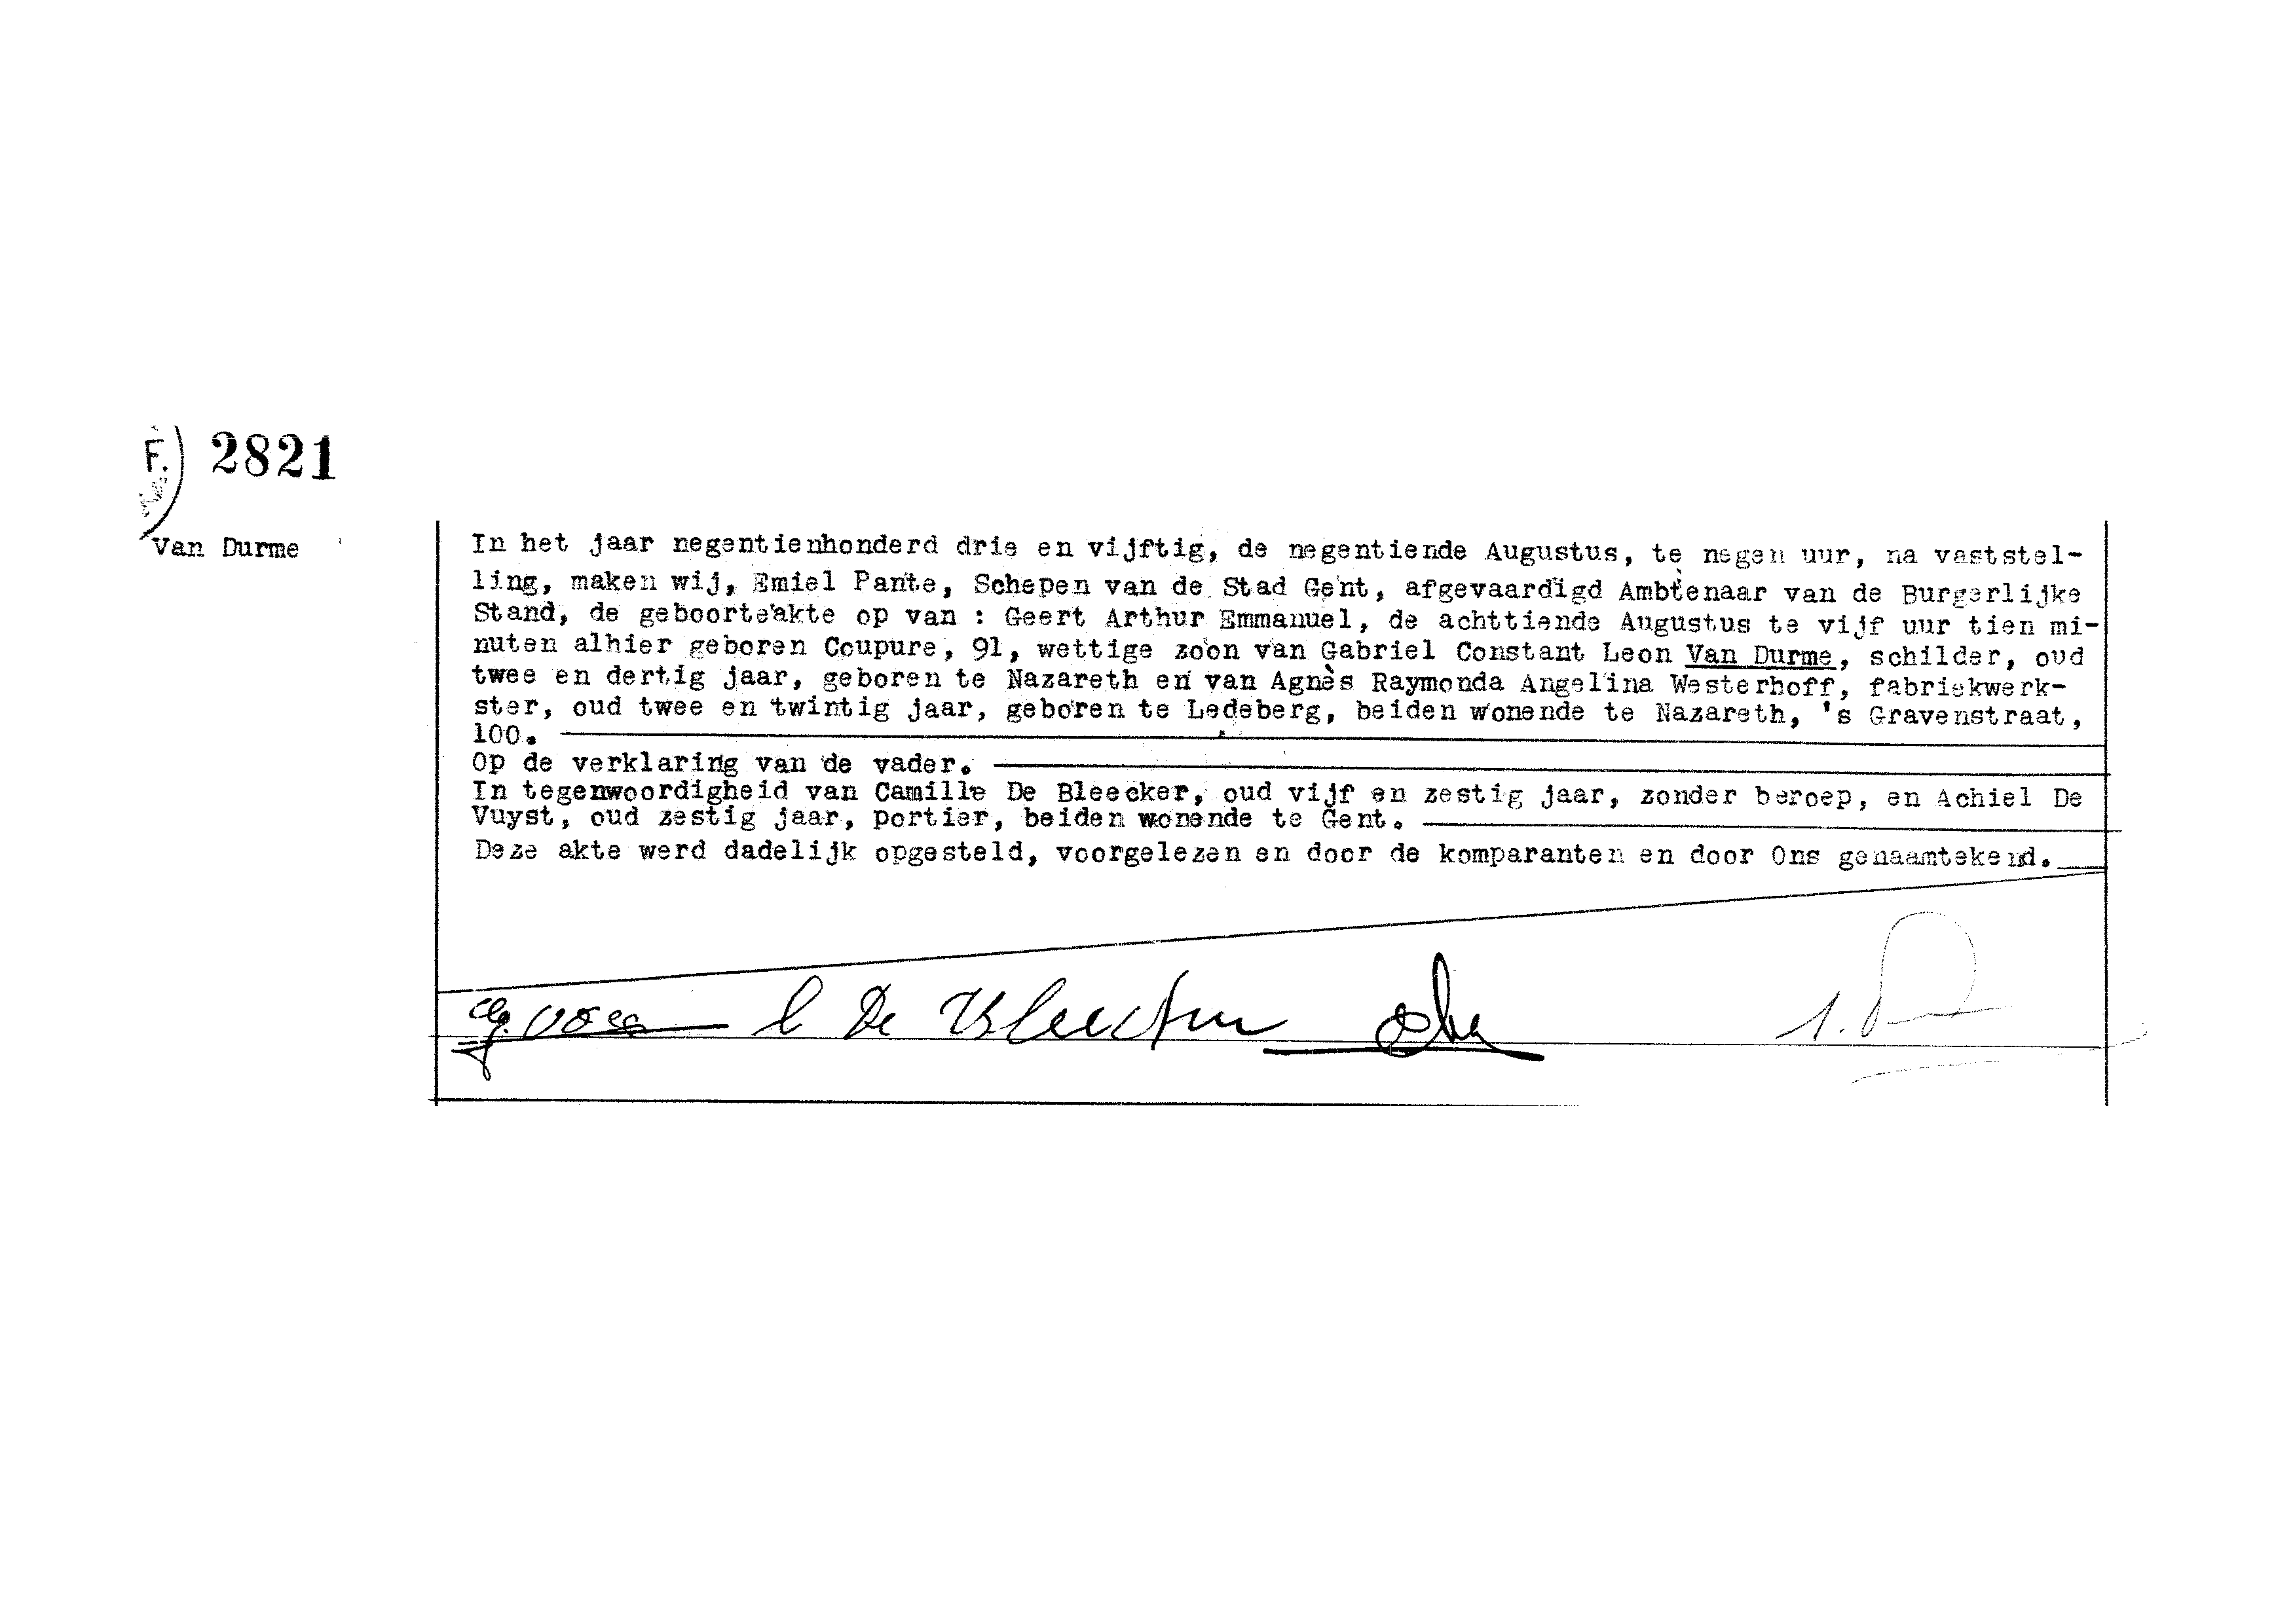 F.) 2821
Van Durme
In het jaar negentienhonderd drie en vijftig, de negentiende Augustus, te negen uur, na vaststel-
ling, maken wij, Emiel Pante, Schepen van de Stad Gent, afgevaardigd Ambtenaar van de Burgerlijke
Stand, de geboorteakte op van : Geert Arthur Emmanuel, de achttiende Augustus te vijf uur tien mi-
nuten alhier geboren Coupure, 91, wettige zoon van Gabriel Constant Leon Van Durme, schilder, oud
twee en dertig jaar, geboren te Nazareth en van Agnès Raymonda Angelina Westerhoff, fabriekwerk-
ster, oud twee en twintig jaar, geboren te Ledeberg, beiden wonende te Nazareth, 's Gravenstraat,
100.
Op de verklaring van de vader.
In tegenwoordigheid van Camille De Bleecker, oud vijf en zestig jaar, zonder beroep, en Achiel De
Vuyst, oud zestig jaar, portier, beiden wonende te Gent.
Deze akte werd dadelijk opgesteld, voorgelezen en door de komparanten en door Ons genaamtekend.
De Bleecker